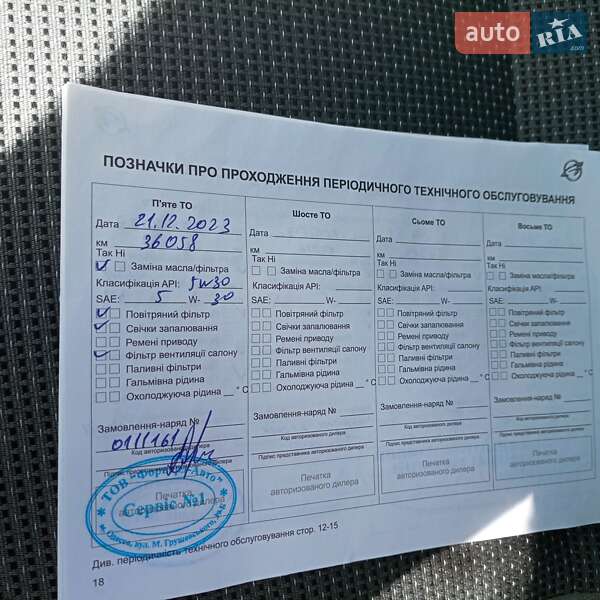 auto RIA .com
ПОЗНАЧКИ ПРО ПРОХОДЖЕННЯ ПЕРІОДИЧНОГО ТЕХНІЧНОГО ОБСЛУГОВУВАННЯ
П'яте ТО
Дата 21.12.2023
км 36058
Так Ні
Заміна масла/фільтра
Класифікація API: 5w30
SAE: 5 W- 30
Повітряний фільтр
Свічки запалювання
Ремені приводу
Фільтр вентиляції салону
Паливні фільтри
Гальмівна рідина
Охолоджуюча рідина __ ° С
Замовлення-наряд №
0111161
Код авторизованого дилера
Підпис представника авторизованого дилера
Печатка
авторизованого дилера
ТОВ "Форвард Авто"
Сервіс №1
м. Одеса, вул. М. Грушевського,
Шосте ТО
Дата
км
Так Ні
Заміна масла/фільтра
Класифікація API:
SAE: W-
Повітряний фільтр
Свічки запалювання
Ремені приводу
Фільтр вентиляції салону
Паливні фільтри
Гальмівна рідина
Охолоджуюча рідина __ ° С
Замовлення-наряд №
Код авторизованого дилера
Підпис представника авторизованого дилера
Печатка
авторизованого дилера
Сьоме ТО
Дата
км
Так Ні
Заміна масла/фільтра
Класифікація API:
SAE: W-
Повітряний фільтр
Свічки запалювання
Ремені приводу
Фільтр вентиляції салону
Паливні фільтри
Гальмівна рідина
Охолоджуюча рідина __ ° С
Замовлення-наряд №
Код авторизованого дилера
Підпис представника авторизованого дилера
Печатка
авторизованого дилера
Восьме ТО
Дата
км
Так Ні
Заміна масла/фільтра
Класифікація API:
SAE: W-
Повітряний фільтр
Свічки запалювання
Ремені приводу
Фільтр вентиляції салону
Паливні фільтри
Гальмівна рідина
Охолоджуюча рідина __ ° С
Замовлення-наряд №
Код авторизованого дилера
Підпис представника авторизованого дилера
Печатка
авторизованого дилера
Див. періодичність технічного обслуговування стор. 12-15
18